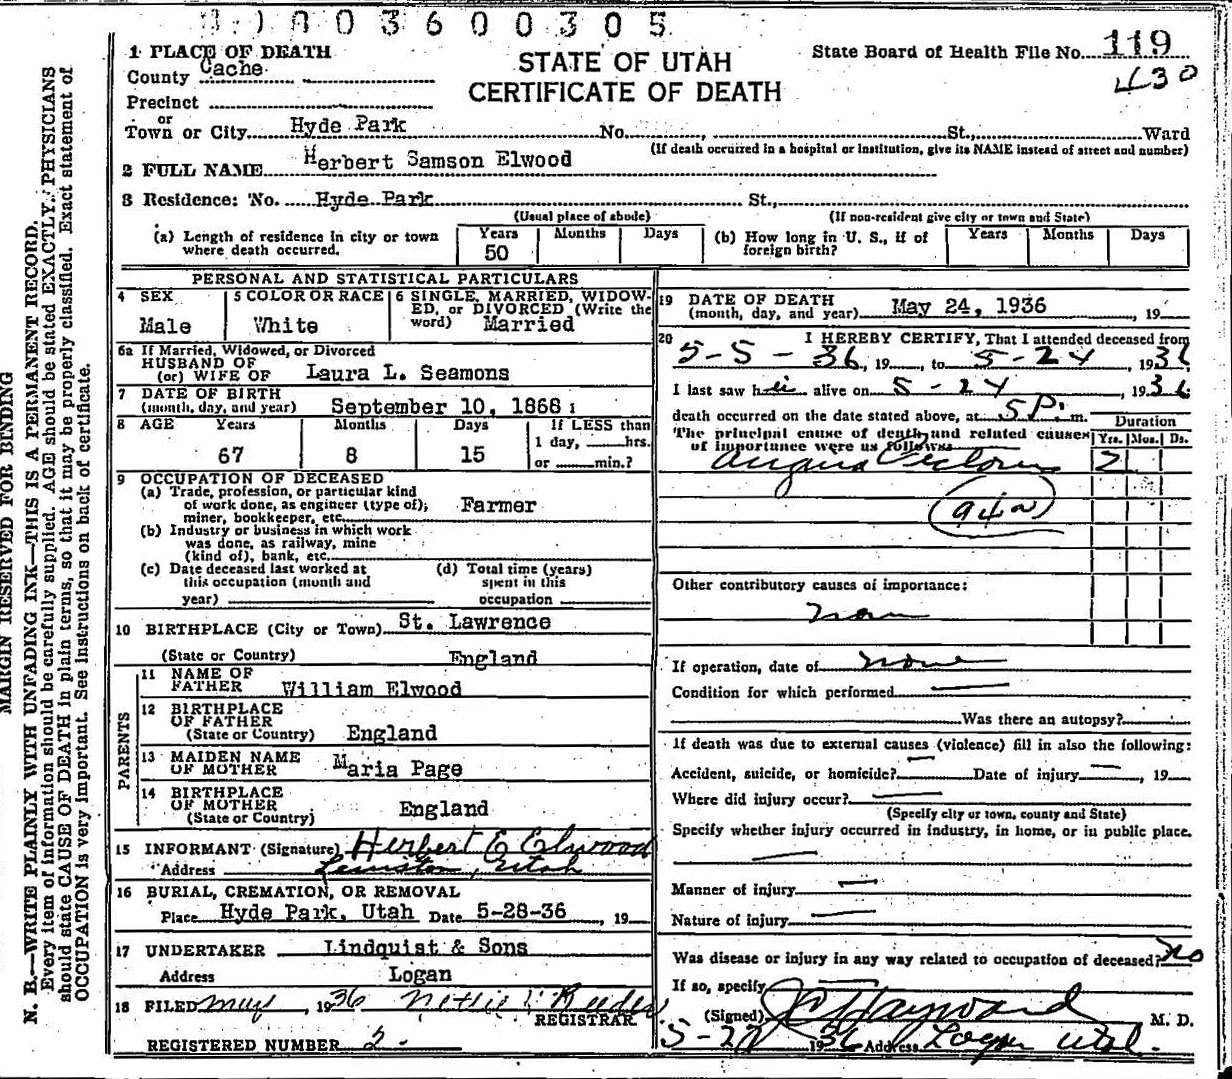 003600305
1 PLACE OF DEATH
STATE OF UTAH
CERTIFICATE OF DEATH
State Board of Health File No. 119
430
County Cache
Precinct
or
Town or City Hyde Park No. , St., Ward
(If death occurred in a hospital or institution, give its NAME instead of street and number)
2 FULL NAME Herbert Samson Elwood
3 Residence: No. Hyde Park St.,
(Usual place of abode) (If non-resident give city or town and State)
(a) Length of residence in city or town where death occurred. Years 50 Months Days
(b) How long in U. S., if of foreign birth? Years Months Days
PERSONAL AND STATISTICAL PARTICULARS
4 SEX Male
5 COLOR OR RACE White
6 SINGLE, MARRIED, WIDOWED, or DIVORCED (Write the word) Married
6a If Married, Widowed, or Divorced
HUSBAND OF
(or) WIFE OF Laura L. Seamons
7 DATE OF BIRTH
(month, day, and year) September 10, 1868
8 AGE Years 67 Months 8 Days 15
If LESS than 1 day, hrs. or min.?
9 OCCUPATION OF DECEASED
(a) Trade, profession, or particular kind
of work done, as engineer (type of); Farmer
miner, bookkeeper, etc.
(b) Industry or business in which work
was done, as railway, mine
(kind of), bank, etc.
(c) Date deceased last worked at
this occupation (month and
year)
(d) Total time (years)
spent in this
occupation
10 BIRTHPLACE (City or Town) St. Lawrence
(State or Country) England
PARENTS
11 NAME OF
FATHER William Elwood
12 BIRTHPLACE
OF FATHER
(State or Country) England
13 MAIDEN NAME
OF MOTHER Maria Page
14 BIRTHPLACE
OF MOTHER
(State or Country) England
15 INFORMANT (Signature) Herbert E Elwood
Address Lewiston, Utah
16 BURIAL, CREMATION, OR REMOVAL
Place Hyde Park, Utah Date 5-28-36, 19
17 UNDERTAKER Lindquist & Sons
Address Logan
18 FILED May 1936 Nettie Reeder
REGISTRAR
REGISTERED NUMBER 2-
19 DATE OF DEATH
(month, day, and year) May 24, 1936, 19
20 I HEREBY CERTIFY, That I attended deceased from
5-5-36, 19 to 5-24, 1936
I last saw h alive on 5-24, 1936
death occurred on the date stated above, at 5 P. m.
Duration
The principal cause of death and related causes
of importance were as follows: Yrs. Mos. Ds.
Angina Pectoris 2
94a
Other contributory causes of importance:
none
If operation, date of none
Condition for which performed
Was there an autopsy?
If death was due to external causes (violence) fill in also the following:
Accident, suicide, or homicide? Date of injury , 19
Where did injury occur?
(Specify city or town, county and State)
Specify whether injury occurred in industry, in home, or in public place.
Manner of injury
Nature of injury
Was disease or injury in any way related to occupation of deceased? No
If so, specify
(Signed) Hayward M. D.
5-27 1936 Address Logan Utah.
MARGIN RESERVED FOR BINDING
N. B.—WRITE PLAINLY WITH UNFADING INK—THIS IS A PERMANENT RECORD.
Every item of information should be carefully supplied. AGE should be stated EXACTLY. PHYSICIANS
should state CAUSE OF DEATH in plain terms, so that it may be properly classified. Exact statement of
OCCUPATION is very important. See instructions on back of certificate.